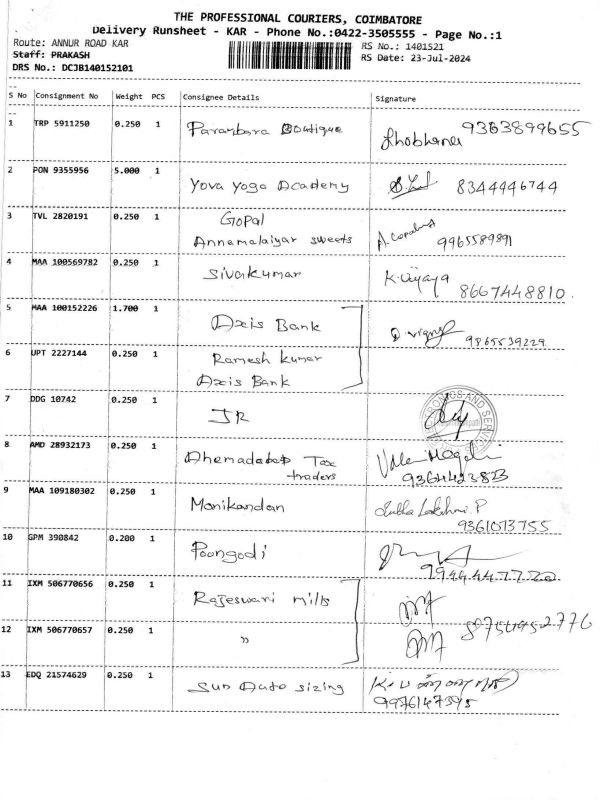 THE PROFESSIONAL COURIERS, COIMBATORE
Delivery Runsheet - KAR - Phone No.:0422-3505555 - Page No.:1
Route: ANNUR ROAD KAR
RS No.: 1401521
Staff: PRAKASH
RS Date: 23-Jul-2024
DRS No.: DCJB140152101
S No Consignment No Weight PCS Consignee Details Signature
1 TRP 5911250 0.250 1 Parambara Boutique Shobhana 9363899655
2 PON 9355956 5.000 1 Yova Yoga Academy 8344446744
3 TVL 2820191 0.250 1 Gopal
Annamalaiyar sweets A. Gopal 9965589891
4 MAA 100569782 0.250 1 Sivakumar K. Vijaya
8667448810.
5 MAA 100152226 1.700 1 Axis Bank
9865539229
6 UPT 2227144 0.250 1 Ramesh kumar
Axis Bank
7 DDG 10742 0.250 1 JR
8 AMD 28932173 0.250 1 Ahemadabad Tax
traders
9364423823
9 MAA 109180302 0.250 1 Manikandan Subha Lakshmi. P
9361013755
10 GPM 390842 0.200 1 Poongodi
9944447720
11 IXM 506770656 0.250 1 Rajeswari mills
12 IXM 506770657 0.250 1 "
13 EDQ 21574629 0.250 1 Sun Auto sizing
9976147395